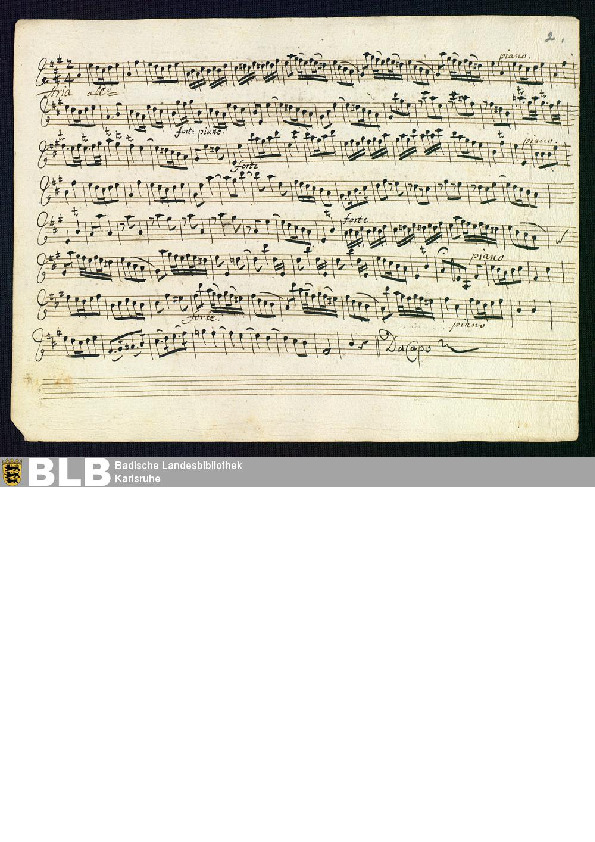 2.
piano.
Aria all.º
fort: piano
forte
piano.
forte
piano
forte
piano
Da Capo
BLB Badische Landesbibliothek
Karlsruhe